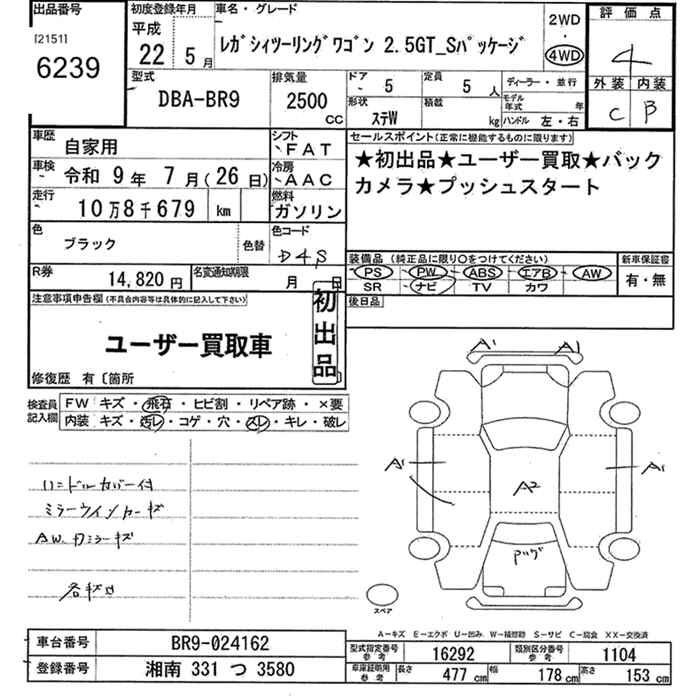 出品番号
[2151]
6239
初度登録年月
平成
22 5月
車名・グレード
レガシィツーリングワゴン 2.5GT_Sパッケージ
2WD
・
4WD
評価点
4
外装 内装
C B
型式
DBA-BR9
排気量
2500 CC
ドア 5
定員 5 人
形状 ステW
積載 kg
ディーラー・並行
モデル年式 年
ハンドル 左・右
車歴 自家用
シフト FAT
車検 令和 9年 7月(26日)
冷房 AAC
走行 10万8千679 km
燃料 ガソリン
色 ブラック 色替
色コード D4S
R券 14,820 円
名変通知期限 月 日
セールスポイント(正常に機能するものに限ります)
★初出品★ユーザー買取★バック
カメラ★プッシュスタート
装備品(純正品に限り〇をつけてください)
新車保証書
PS PW ABS エアB AW
SR ナビ TV カワ
有・無
後日品
注意事項申告欄(不具合内容等は具体的に記入して下さい)
初出品
ユーザー買取車
修復歴 有〔箇所
検査員記入欄
FW キズ・飛石・ヒビ割・リペア跡・×要
内装 キズ・汚レ・コゲ・穴・スレ・キレ・破レ
ハンドルカバー付
ミラーウインカーキズ
AW.ドミラーキズ
各キズ凹
A1 A1
A1 A1
A2
スペア
A-キズ E-エクボ U-凹み W-補修跡 S-サビ C-腐食 XX-交換済
車台番号 BR9-024162
登録番号 湘南 331 つ 3580
型式指定番号 参考 16292
類別区分番号 参考 1104
車庫証明用 参考 長さ 477 cm 幅 178 cm 高さ 153 cm